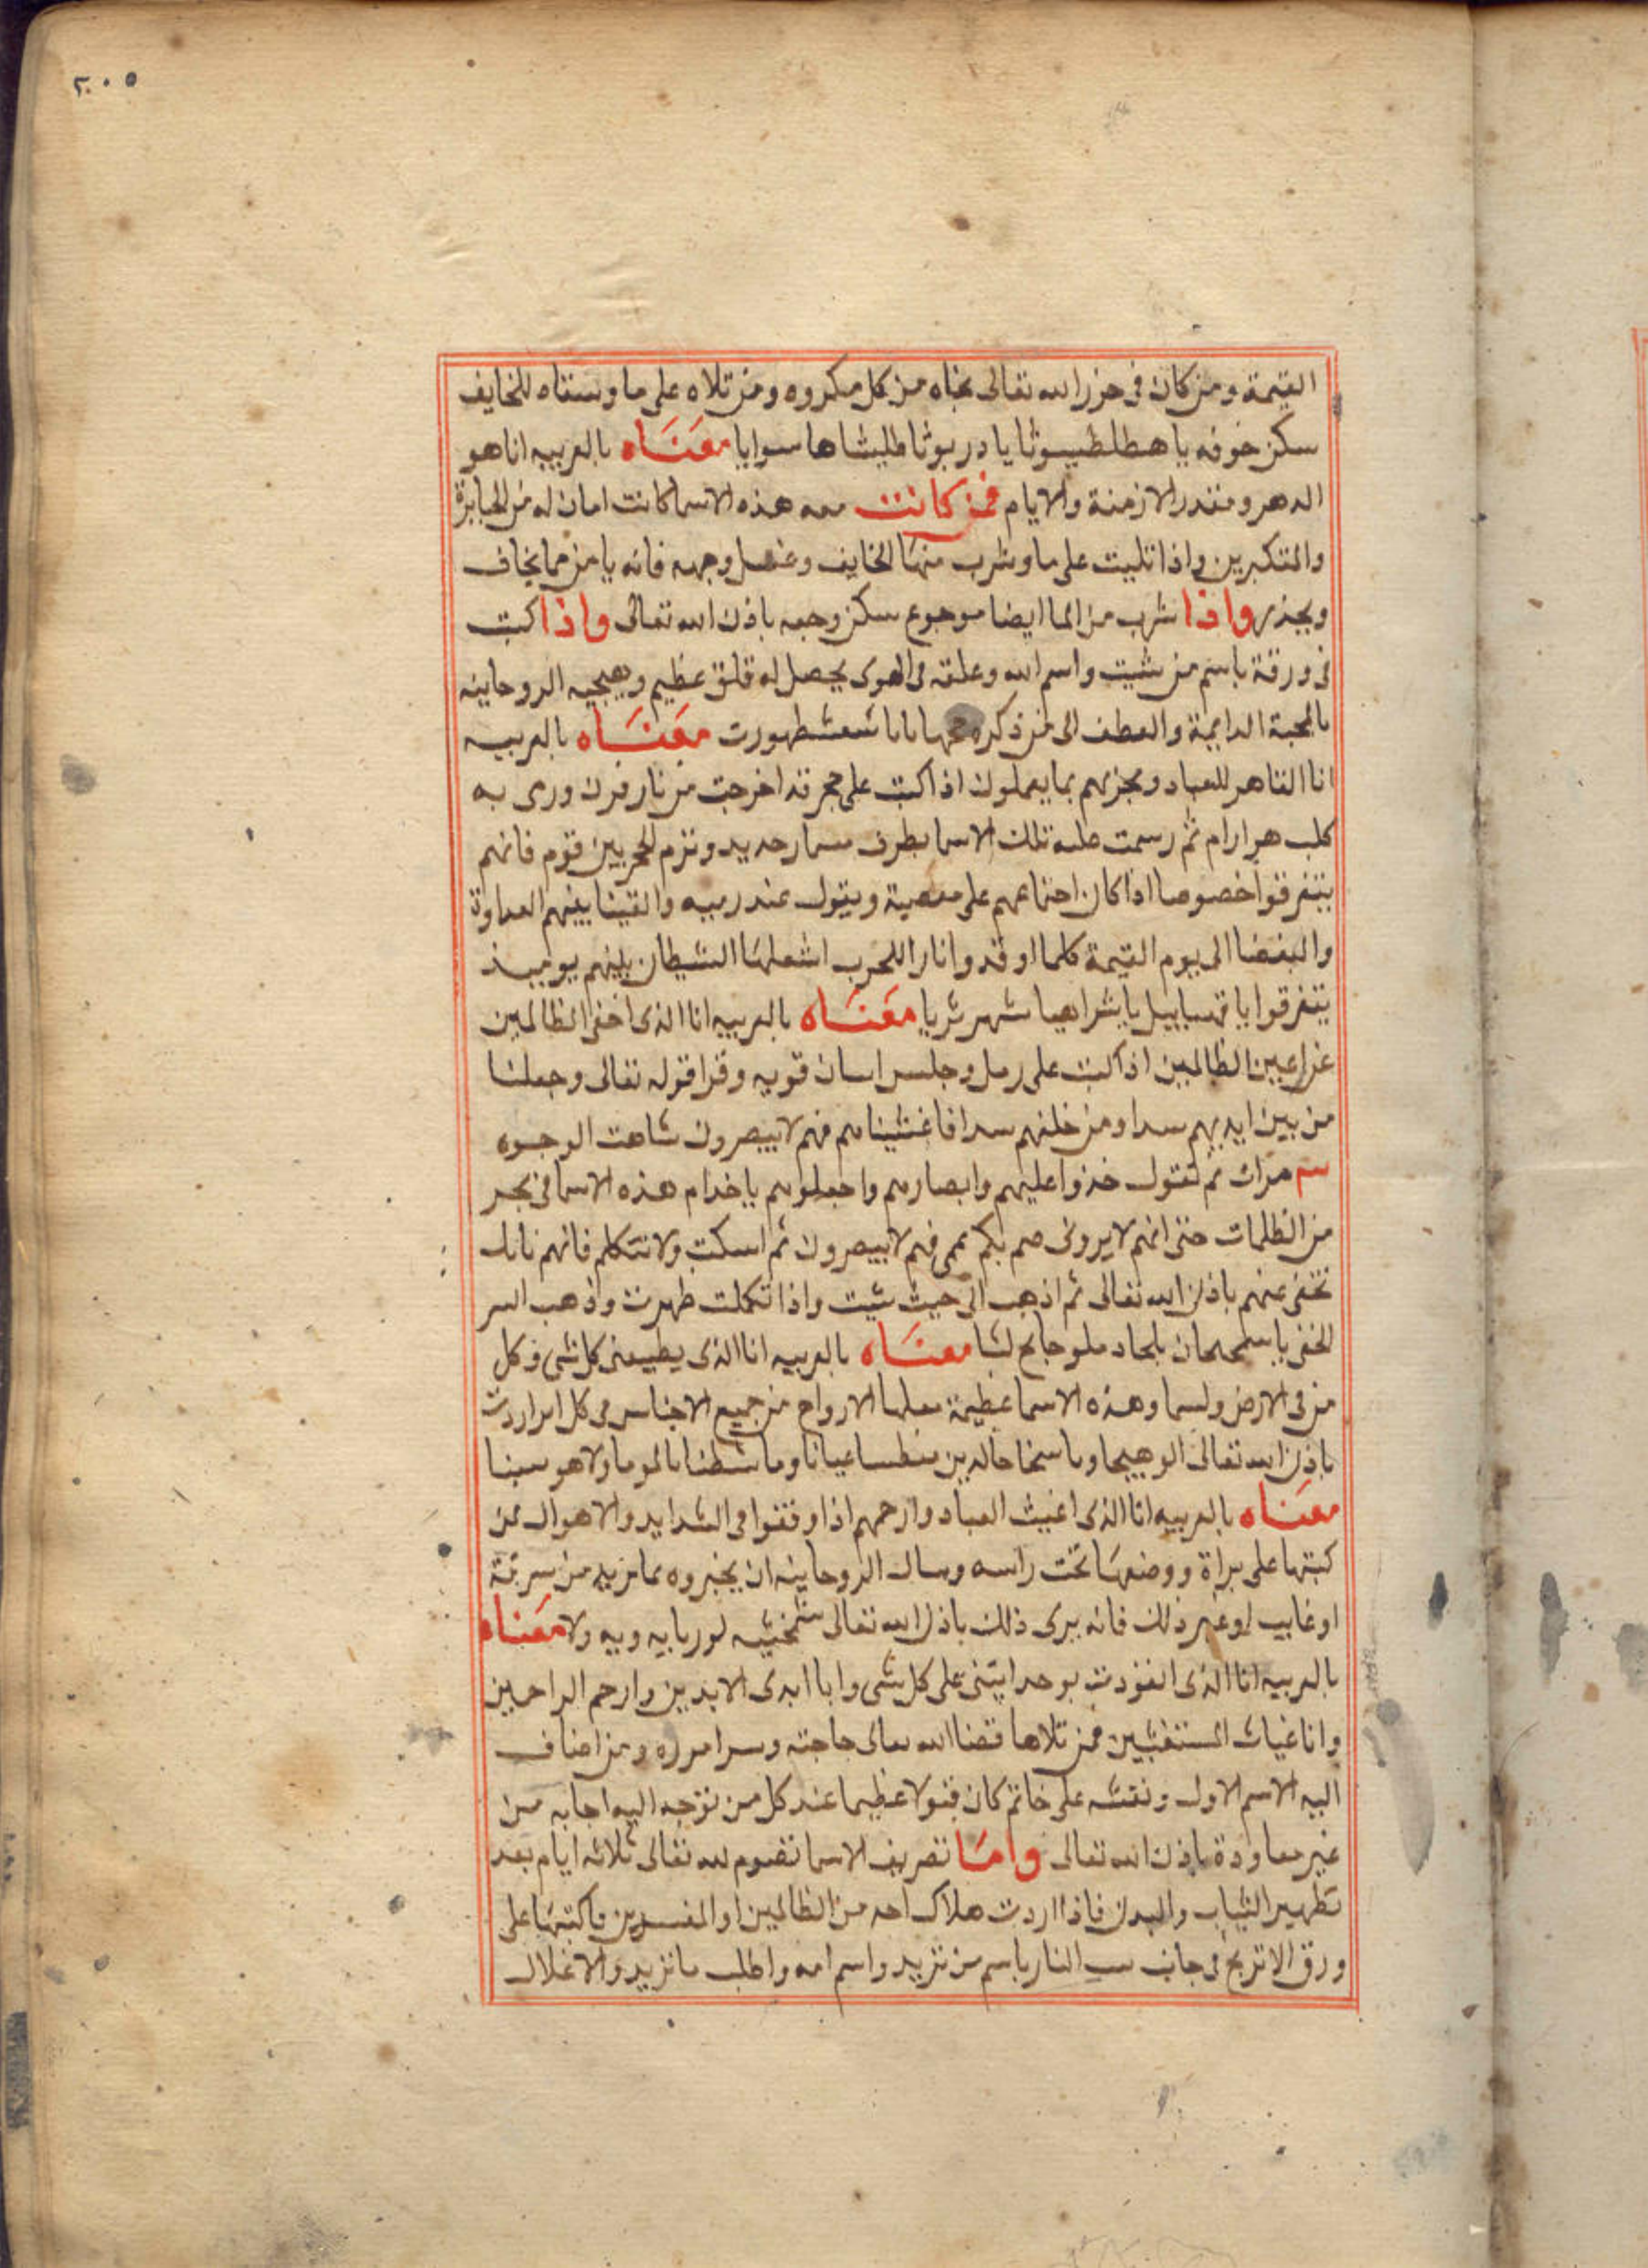 ٢٠٥
القيمة ومن كان في حرز الله تعالى نجاه من كل مكروه ومن تلاه على ما وسقاه للخايف
سكن خوفه يا هطلطيسوثا يا دربوثا طليشا ها سوايا معناه بالعربيه انا هو
الدهر ومقدر الازمنة والايام فمن كانت معه هذه الاسما كانت امان له من الجبابرة
والمتكبرين واذا تليت على ما وشرب منها الخايف وغسل وجهه فانه يا من مما يخاف
ويحذر واذا شرب من الما ايضا موجوع سكن وجعه باذن الله تعالى واذا كتبت
في ورقة باسم من شيت واسم الله وعلقه في الهوى يحصل له قلق عظيم وتهيجيه الروحانيه
بالمحبة الدايمة والعطف الى من ذكره شعشطهورت معناه بالعربيه
انا القاهر للعباد ومجزيهم بما يعملون اذا كتبت على حجر قد اخرجت من نار فرن ورمى به
كلب هرارام ثم رسمت عليه تلك الاسما بطرف مسمار حديد وترم الحجر بين قوم فانهم
يتفرقوا خصوصا اذا كان اجتماعهم على معصية ويقول عند رميه والقينا بينهم العداوة
والبغضا الى يوم القيمة كلما اوقدوا نارا للحرب اشعلها الشيطان بينهم يوميذ
يتفرقوا يا قهساييل يا يشراهيا شهرثريا معناه بالعربيه انا الذي اخفي الظالمين
عن اعين الظالمين اذا كتبت على رمل وجلس اسان قويه وقرا قوله تعالى وجعلنا
من بين ايديهم سدا ومن خلفهم سدا فاغشيناهم فهم لا يبصرون شاهت الوجوه
٣ مرات ثم تقول خذوا عليهم وابصارهم واجعلوهم يا خدام هذه الاسما في بحر
من الظلمات حتى انهم لا يروني صم بكم عمي فهم لا يبصرون ثم اسكت ولا تتكلم فانهم
تختفى عنهم باذن الله تعالى ثم اذهب الى حيث شيت واذا تكلمت ظهرت وذهب السر
الخفى يا معناه بالعربيه انا الذي يطيعني كل شي وكل
من في الارض ولسما وهذه الاسما عظيمة الارواح من جميع الاجناس في كل امر اردت
باذن الله تعالى
معناه بالعربيه انا الذي اغيث العباد وارحمهم اذا وقفوا في الشدايد والاهوال فمن
كتبها على براة ووضعها تحت راسه وسال الروحانيه ان يخبروه بما يريد من سرقة
او غايب او غير ذلك فانه يرى ذلك باذن الله تعالى معناه
بالعربيه انا الذي انفردت بوحدانيتي على كل شي وانا ابدى الابدين وارحم الراحمين
وانا غياث المستغيثين فمن تلاها قضا الله تعالى حاجته ويسر اموره ومن اضاف
اليه الاسم الاول ونقشه على خاتم كان قبولا عظيما عند كل من توجه اليه اجابه من
غير معاودة باذن الله تعالى واما تصريف الاسما تصوم لله تعالى ثلاثه ايام بعد
تطهير الثياب والبدن فاذا اردت هلاك احد من الظالمين او المفسدين فاكتبها على
ورق الاترج في جانب النار باسم من تريد واسم امه واطلب ما تريد والاغلال